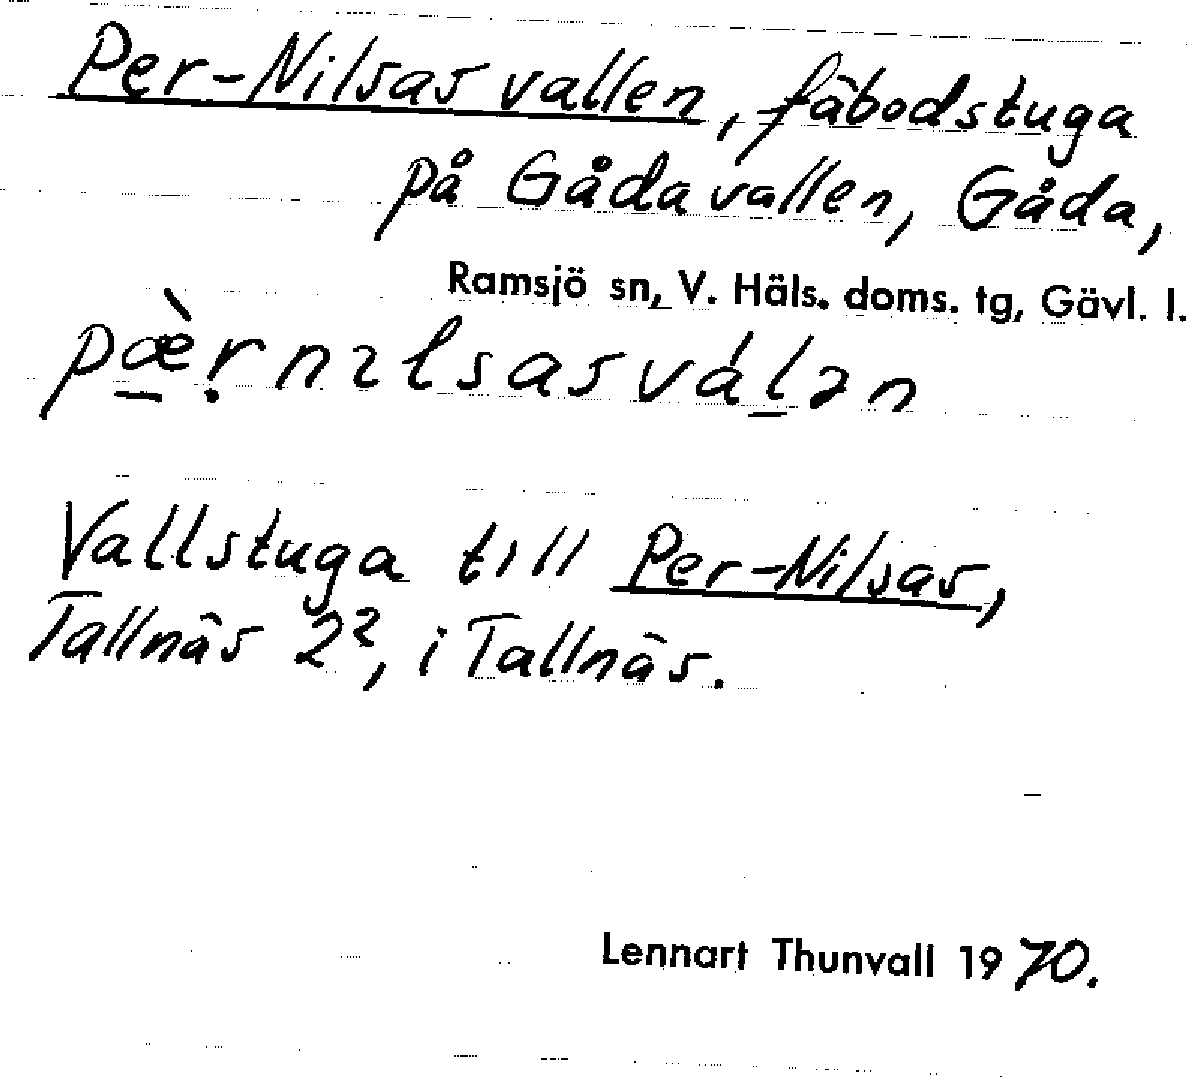 Per-Nilsas vallen, fäbodstuga
på Gåda vallen, Gåda,
Ramsjö sn, V. Häls. doms. tg, Gävl. l.
pæ̠̀ṛnɪlsasválən
Vallstuga till Per-Nilsas,
Tallnäs 2², i Tallnäs.
Lennart Thunvall 1970.